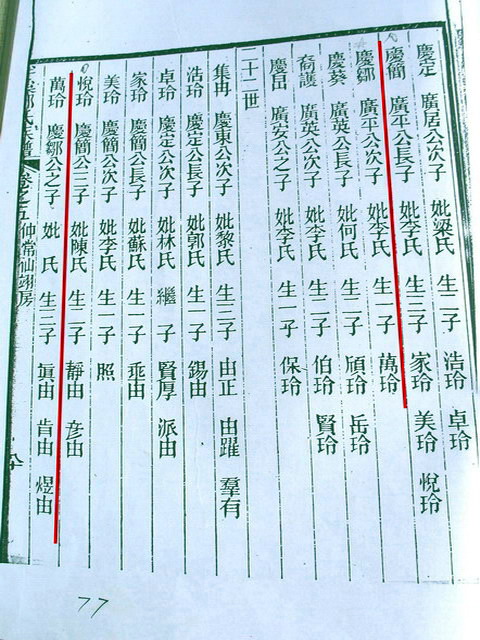 慶定 廣居公次子 妣梁氏 生二子 浩玲 卓玲
慶簡 廣平公長子 妣李氏 生三子 家玲 美玲 悅玲
慶鄒 廣平公次子 妣李氏 生一子 萬玲
慶葵 廣英公長子 妣何氏 生二子 頎玲 岳玲
裔護 廣英公次子 妣李氏 生二子 伯玲 賢玲
慶田 廣安公之子 妣李氏 生一子 保玲
二十二世
集冉 慶東公次子 妣黎氏 生三子 由正 由躍 羣有
浩玲 慶定公長子 妣郭氏 生一子 錫由
卓玲 慶定公次子 妣林氏 繼子 賢厚 派由
家玲 慶簡公長子 妣蘇氏 生一子 乖由
美玲 慶簡公次子 妣李氏 生一子 照
悅玲 慶簡公三子 妣陳氏 生二子 靜由 彥由
萬玲 慶鄒公之子 妣 氏 生三子 眞由 肯由 煜由
氏族譜 卷之五 仲常仙翊房
77